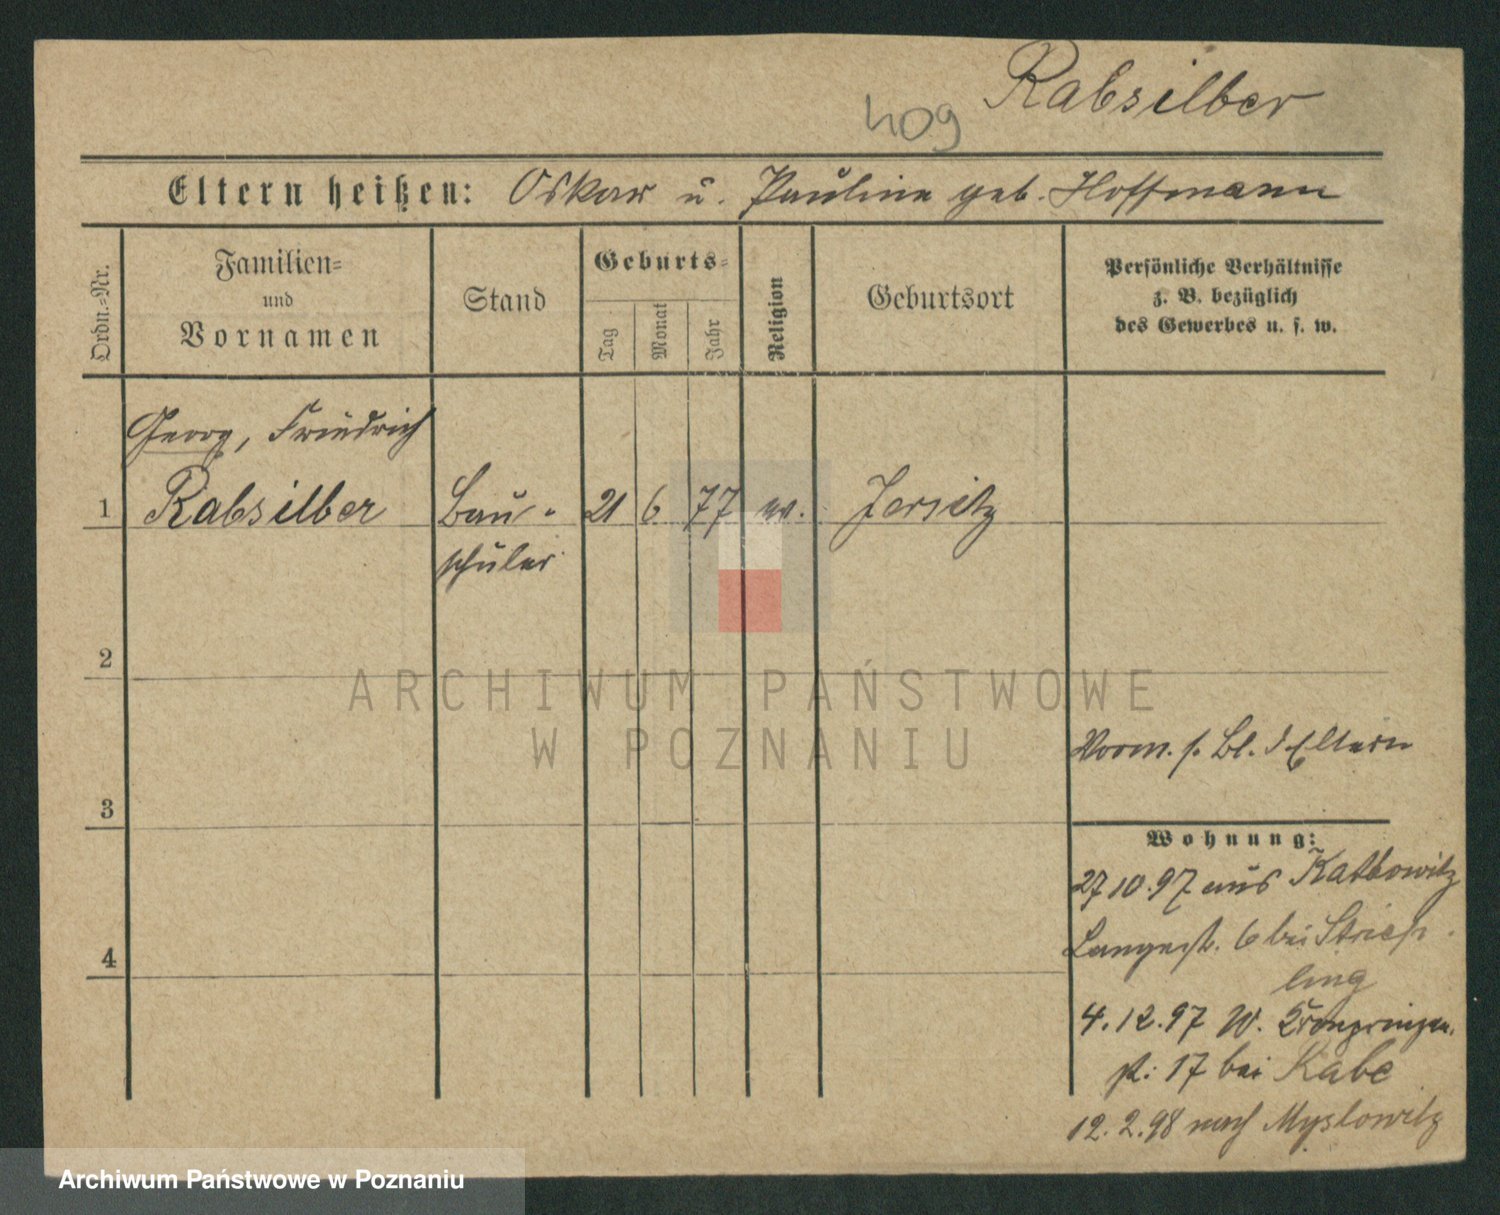 Rabsilber
409
Eltern heißen: Oskar u. Pauline geb. Hoffmann
Ordn.-Nr.
Familien-
und
Vornamen
Stand
Geburts-
Tag
Monat
Jahr
Religion
Geburtsort
Persönliche Verhältnisse
z. B. bezüglich
des Gewerbes u. s. w.
Georg, Friedrich
1 Rabsilber Bau- 21 6 77 Jersitz
schüler
2
Vorm. s. Bl. d Eltern
3
Wohnung:
27 10. 97 aus Kattowitz
Langestr. 6 bei Striess-
ling
4
4. 12. 97 W. Kronprinzen-
st: 17 bei Kabe
12. 2. 98 nach Myslowitz
ARCHIWUM PAŃSTWOWE
W POZNANIU
Archiwum Państwowe w Poznaniu